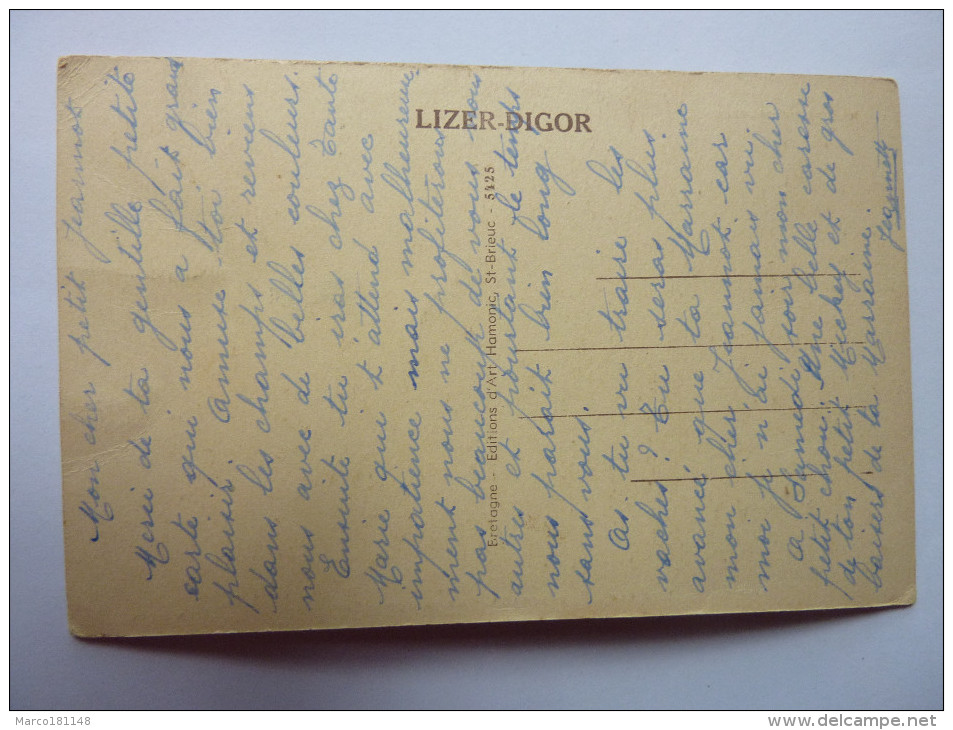 LIZER-DIGOR
Bretagne - Editions d'Art Hamonic, St-Brieuc - 5425
Mon cher petit Jeannot
Merci de ta gentille petite
carte qui nous a fait grand
plaisir. Amuse toi bien
dans les champs et reviens
nous avec de belles couleurs.
Ensuite tu iras chez Tante
Marie qui t'attend avec
impatience mais malheureuse-
ment nous ne profiterons
pas beaucoup de vous nous
autres et pourtant le temps
nous parait bien long
sans vous.
As tu vu traire les
vaches? Tu seras plus
avancé que ta Marraine
mon cher Jeannot car
moi je n'ai jamais vu.
A Samedi soir mon cher
petit chou. Une belle caresse
de ton petit Mickey et de gros
baisers de ta Marraine.
Jeannette
Marco181148
www.delcampe.net